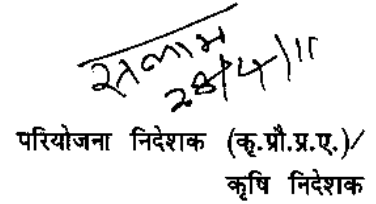 28/4/11
परियोजना निदेशक (कृ.प्रौ.प्र.ए.)/
कृषि निदेशक